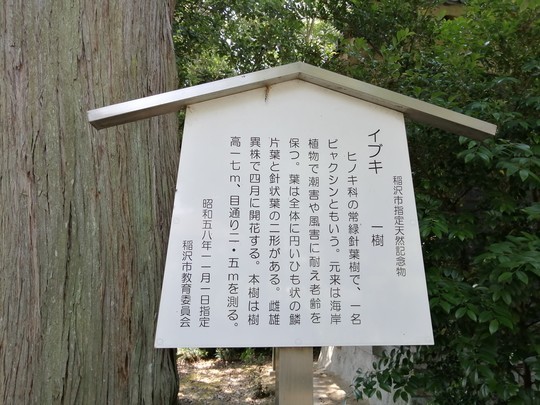 稲沢市指定天然記念物
イブキ　一樹
ヒノキ科の常緑針葉樹で、一名
ビャクシンともいう。元来は海岸
植物で潮害や風害に耐え老齢を
保つ。葉は全体に円いひも状の鱗
片葉と針状葉の二形がある。雌雄
異株で四月に開花する。本樹は樹
高一七m、目通り二・五mを測る。
昭和五八年一一月一日指定
稲沢市教育委員会